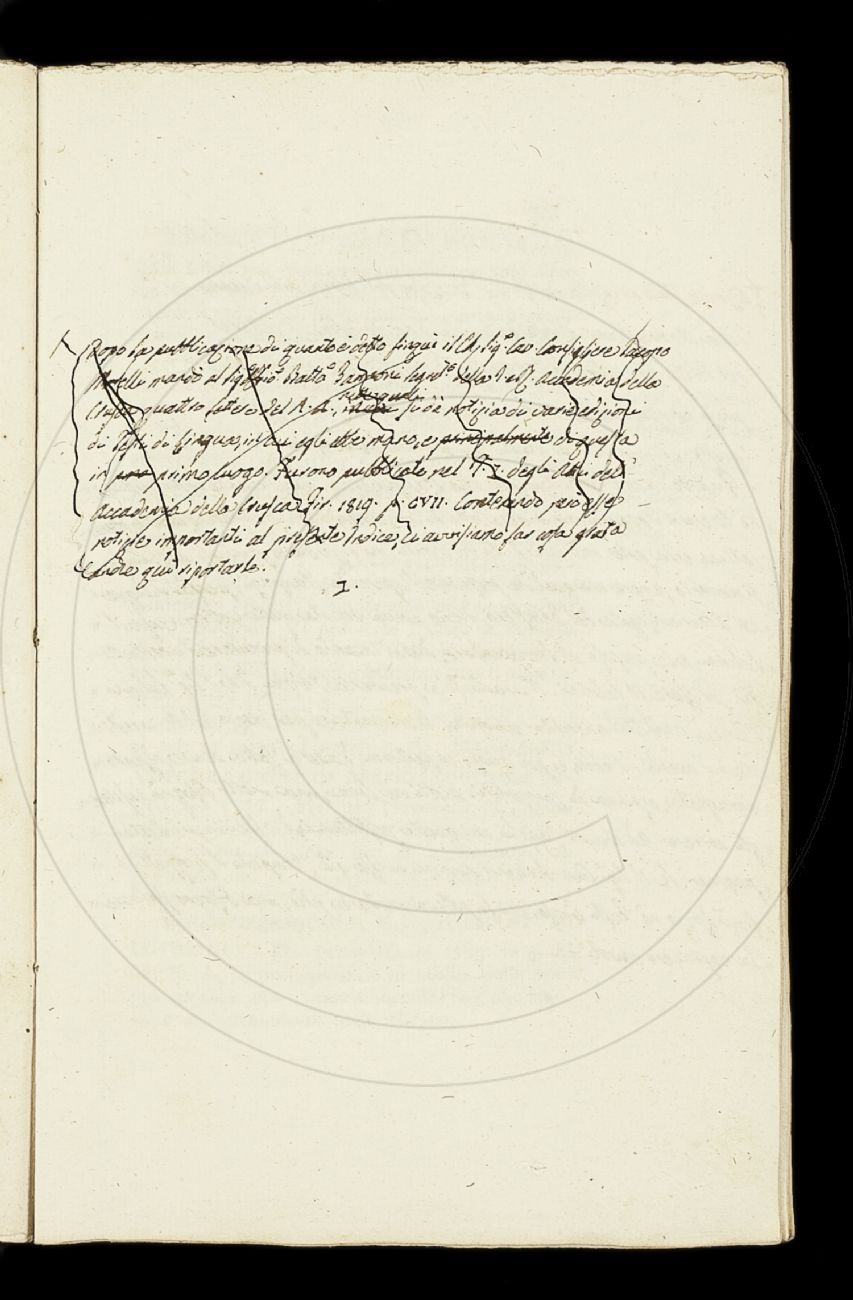 Dopo la pubblicazione di quanto è detto fin qui il Ch. Sig.e Cav. Consigliere Jacopo
Morelli mandò al Sig. Gio. Batta Zannoni Segret.o della I. e R. Accademia della
nelle quali
Crusca quattro lettere del si dà notizia di varie edizioni
di Testi di Lingua, in cui egli ebbe mano, e principalmente di questa
in primo luogo. Furono pubblicate nel T. I. degli Atti dell'
Accademia della Crusca Fir. 1819. p. CVII. Contenendo però esse
notizie importanti al presente Indice, ci avvisiamo far cosa grata
qui riportarle.
I.